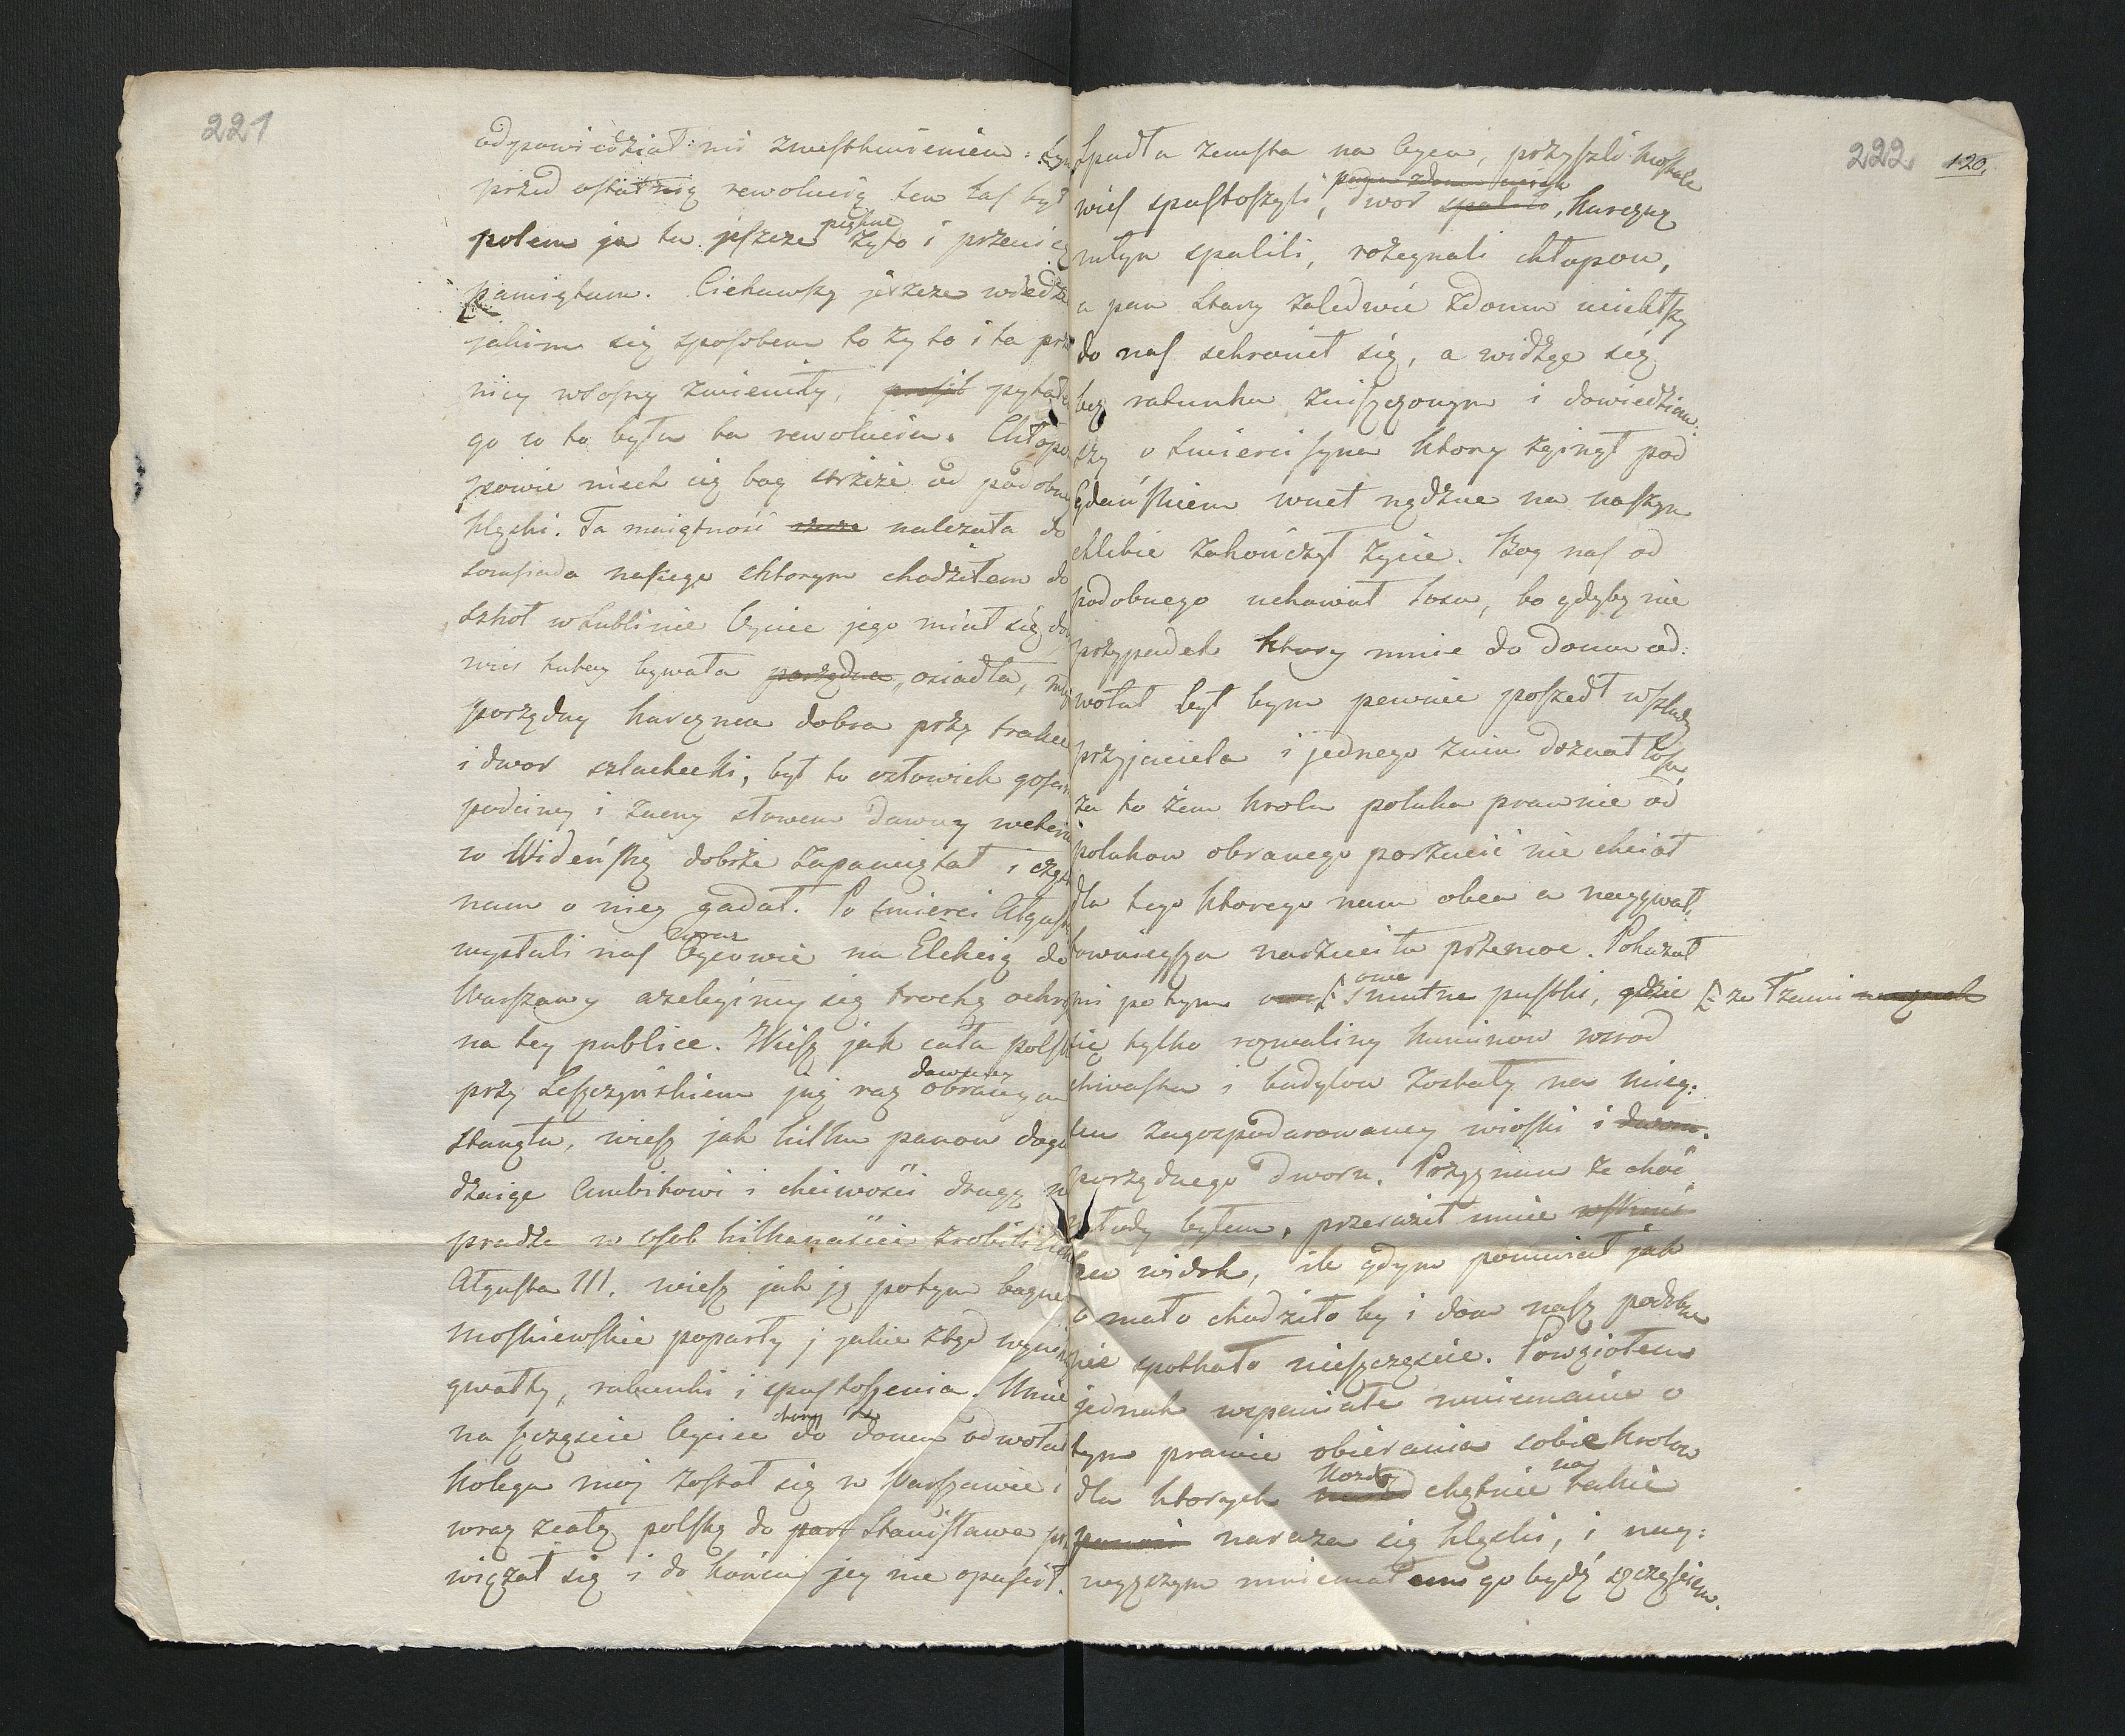 221
odpowiedział mi zwestchnieniem:
przed ostatnią rewolucią ten las był
polem ja tu jeszcze piękne żyto i przenicę
pamiętam. Ciekawszy jeszcze wiedzieć
jakim się sposobem to żyto i ta prze
nicy wsosny zmieniły, prosił pytałem
go co to była ta rewolucia. Chłopcze
powie niech cię bog strzeże od podobney
klęski. Ta maiętność nalezała do
somsiada naszego sktorym chodziłem do
szkoł wLublinie Oyciec jego miał się
wies tutay bywała porządna, osiadła,
porządny karczma dobra przy trakcie
i dwor szlachecki, był to człowiek
podciwy i zacny słowem dawny
w Wideńską dobrze zapamiętał i często
nam o niey gadał. Po smierci Augusta
wysłali nas zaraz Oycowie na Elekcią do
Warszawy azebysmy się trochę
na tey publice. Wiesz jak cała polska
przy Leszczyńskiem już raz dawniey obranym
stanęła, wiesz jak kilku panow doga
dzaiąc Ambitowi i chciwości
w osob kilkanaście zrobili
Augusta III. wiesz jak ją potym bagnety
moskiewskie poparły j jakie ztąd
gwałty, rabunki i spustoszenia. Mnie
na szczęscie Oyciec chory do domu odwołał
kolega moy został się w Warszawie i
wraz zcałą polską do part Stanisława
wiązał się i do końca jey nie opuścił.
222 120.
Spadła zemsta na Oyca, przyszli Moskale
wies spustoszyli, dwor spalili, karczmę
młyn spalili, rozegnali chłopow,
a pan Stary zaledwie zdomu uciekłszy
do nas schronił się, a widząc się
bez ratunku zniszczonym i dowiedziaw:
szy o smierci syna ktory zginął pod
Gdańskiem wnet nędzne na naszym
chlebie zakończył życie. Bog nas od
podobnego uchował losu, bo gdyby nie
przypadek ktory mnie do domu od:
wołał był bym pewnie poszedł wslady
przyjaciela i jednego znim doznał losu,
za to żem krola polaka prawnie od
polakow obranego porzucić nie chciał
dla tego ktorego nam obca a
narzuciła przemoc. Pokazał
mi po tym one smutne pustki, gdzie ze łzami
się tylko rozwaliny kominow wsrod
chwastu i budylow zostały na miey:
scu zagospodarowaney wioski i dworu.
porządnego dworu. Przyznam że choć
młody byłem, przeraził mnie
ten widok, ile gdym pomniał jak
o mało chodziło by i dom nasz podobne
nie spotkało nieszczęscie. Powziołem
jednak wspaniałe mniemanie o
tym prawie obierania sobie krolow
dla ktorych każdy chętnie na takie
naraza się klęski, i nay:
wyższym mniemałem go bydź szczęsciem.